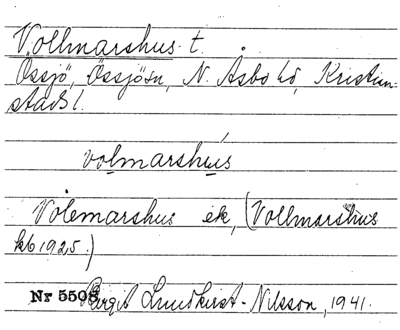 Vollmarshus t.
Össjö, Össjö sn, N. Åsbo hd, Kristian-
stads l.
volmarshus
Volemarshus ek, (Vollmarshus
kb 1925.)
Nr 5508 Birgit Lundkvist-Nilsson, 1941.